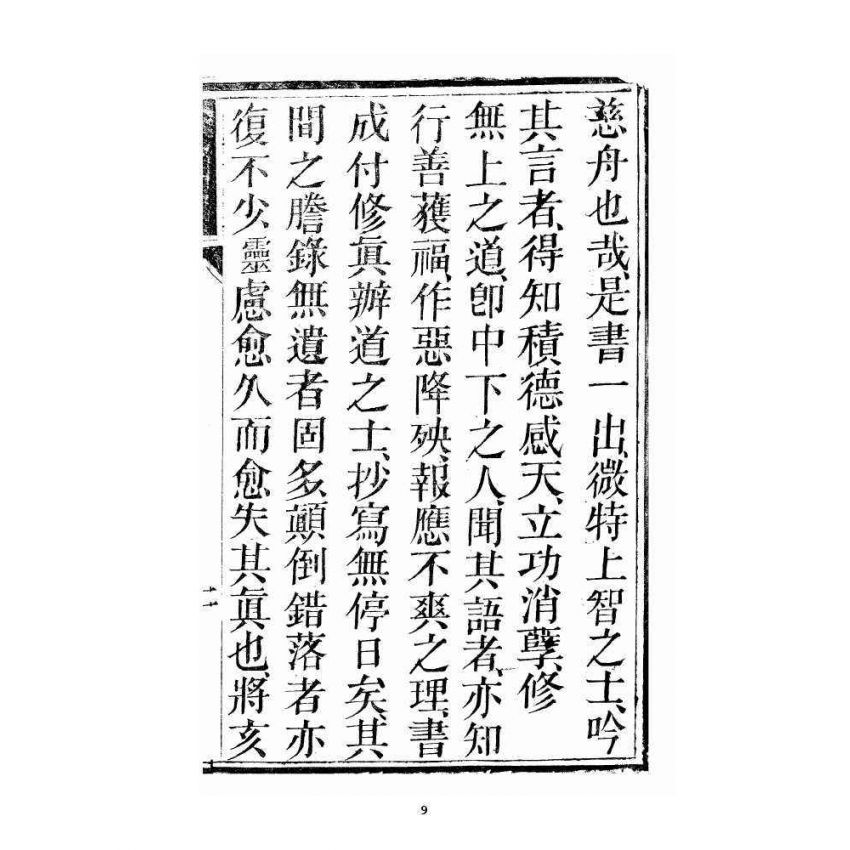 慈舟也哉、是書一出、微特上智之士、吟
其言者、得知積德感天、立功消孽、修
無上之道、卽中下之人、聞其語者、亦知
行善獲福、作惡降殃、報應不爽之理、書
成付修眞辦道之士、抄寫無停日矣、其
間之謄錄無遺者固多、顚倒錯落者亦
復不少、靈慮愈久而愈失其眞也、將亥
二
9